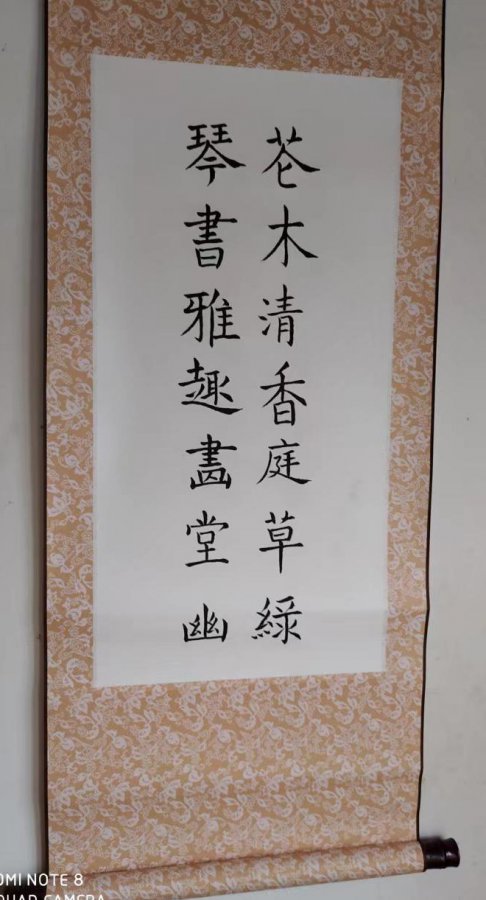 花木清香庭草綠
琴書雅趣畫堂幽
OMI NOTE 8
QUAD CAMERA